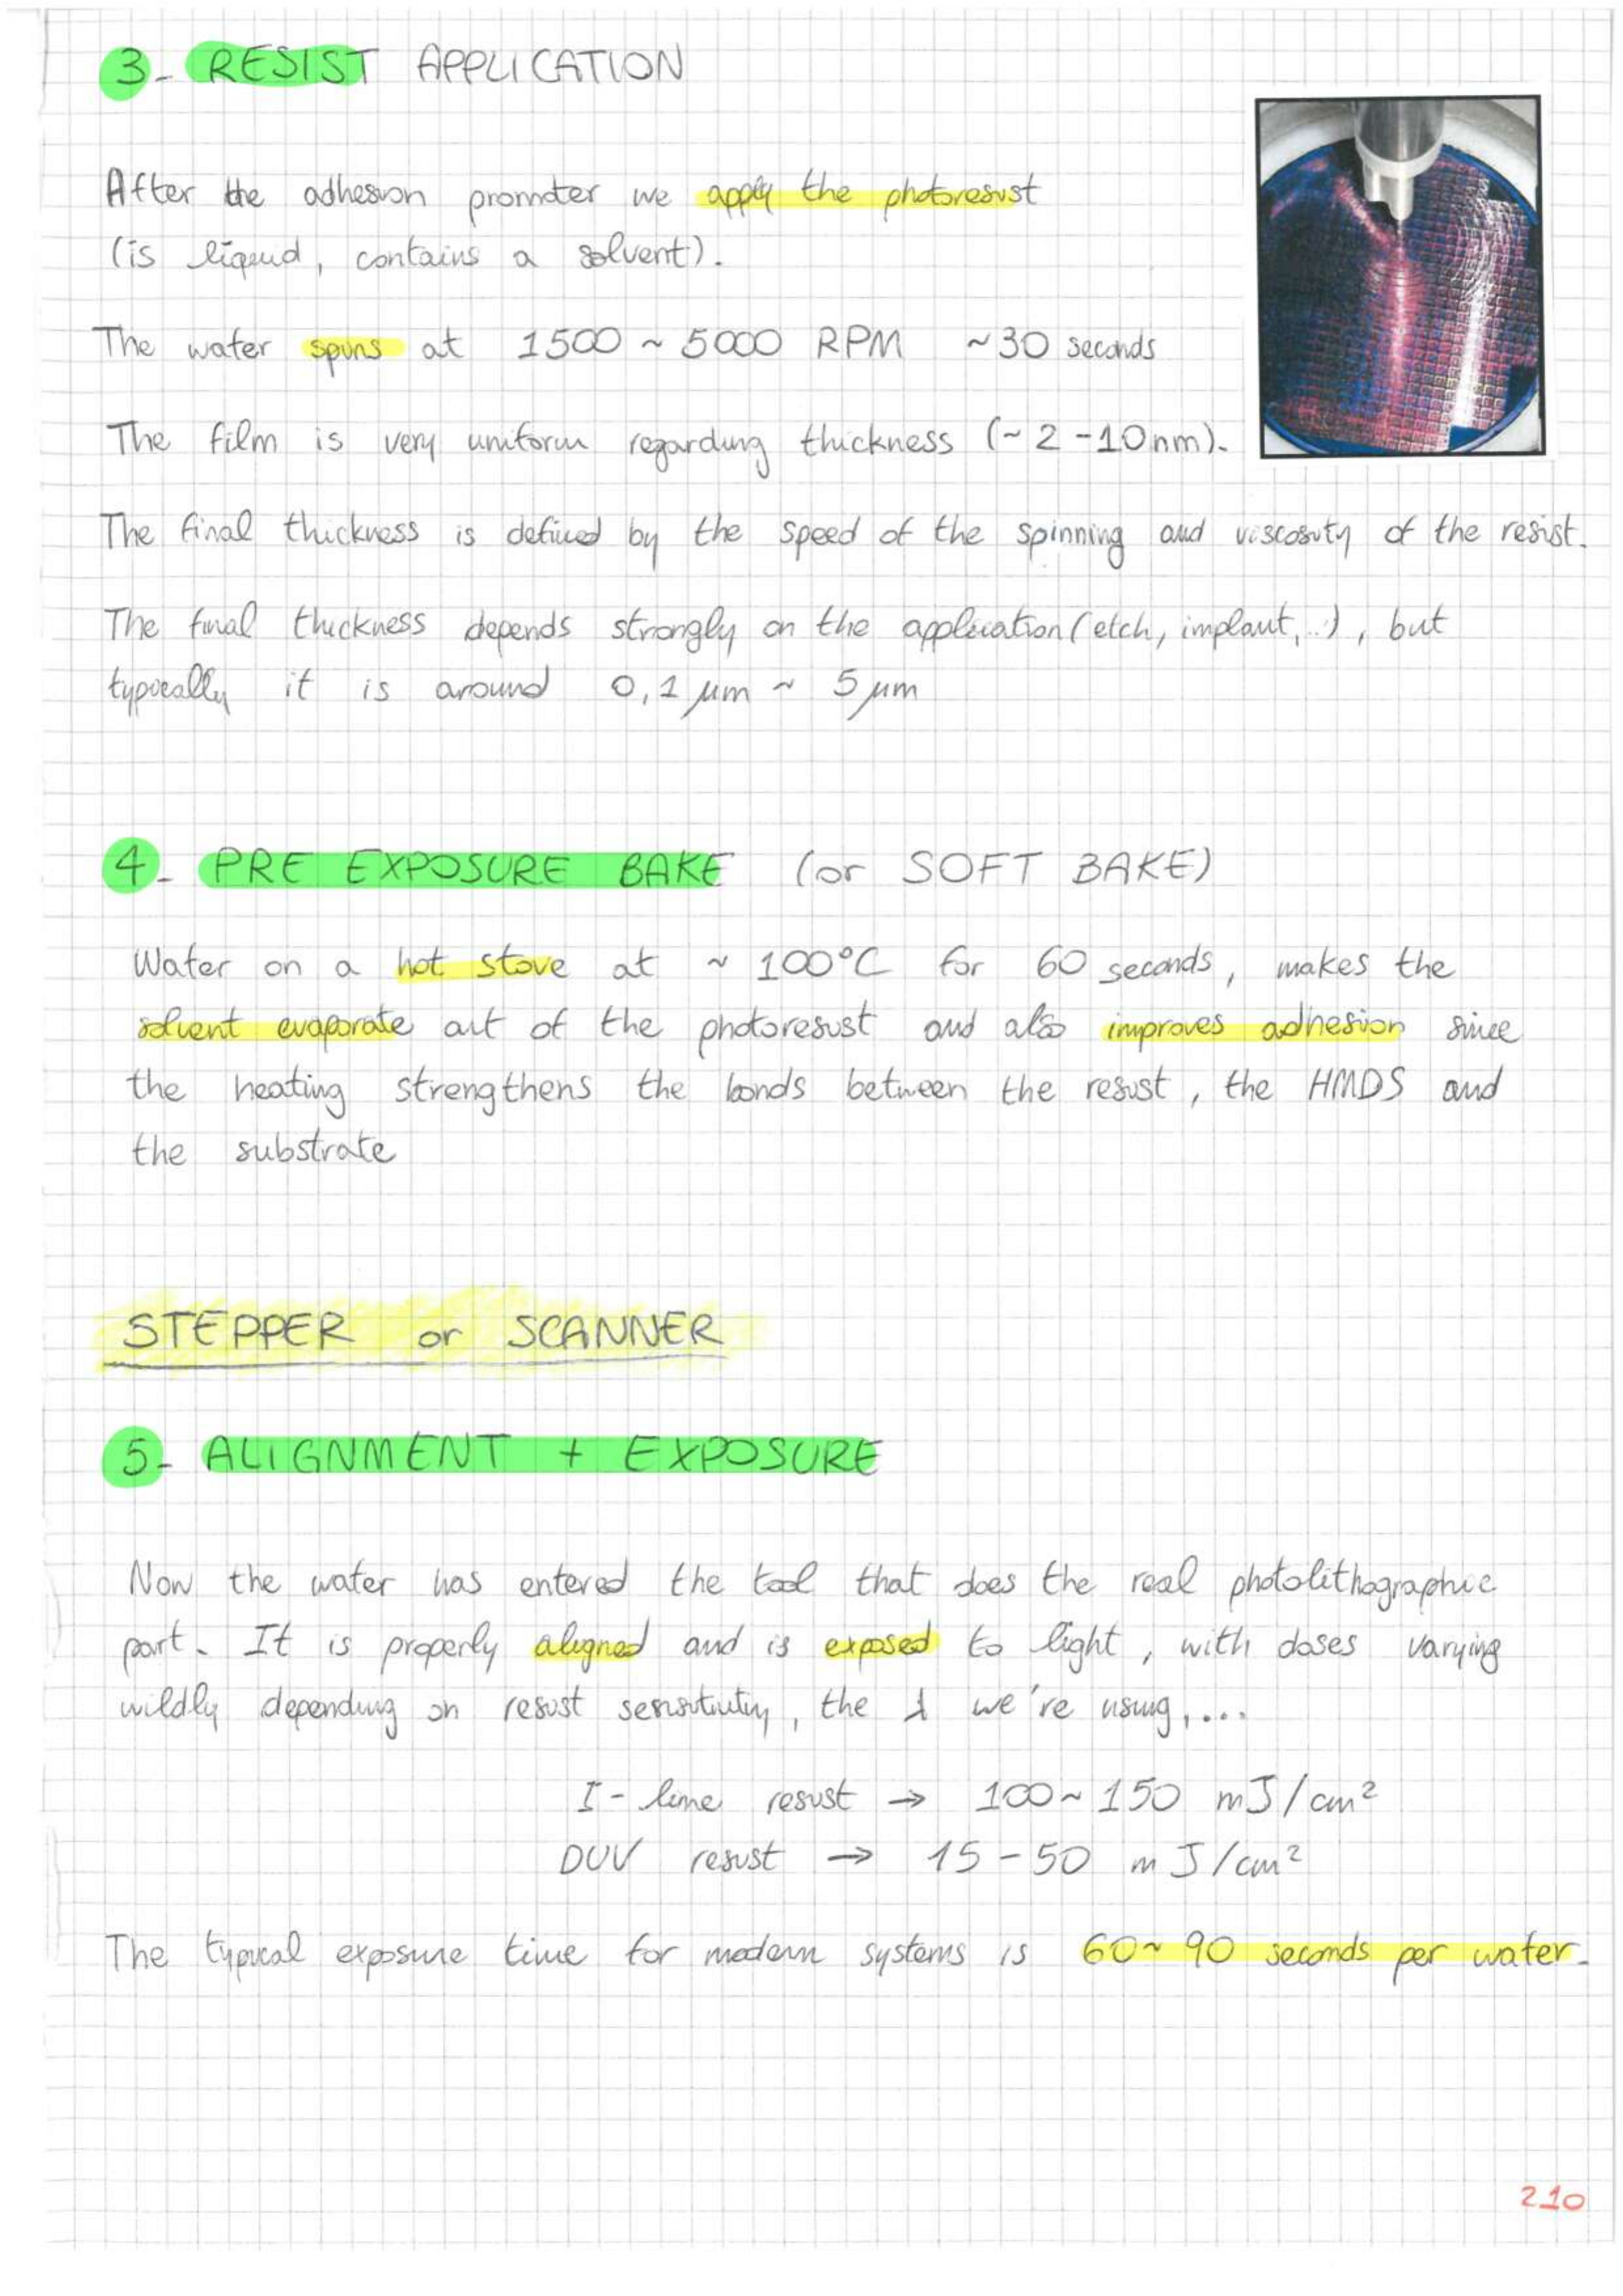 3- RESIST APPLICATION
After the adhesion promoter we apply the photoresist
(is liquid, contains a solvent).
The wafer spins at 1500 ~ 5000 RPM ~30 seconds
The film is very uniform regarding thickness (~ 2 - 10 nm).
The final thickness is defined by the speed of the spinning and viscosity of the resist.
The final thickness depends strongly on the application (etch, implant, ..), but
typically it is around 0,1 μm ~ 5 μm
4- PRE EXPOSURE BAKE (or SOFT BAKE)
Wafer on a hot stove at ~ 100°C for 60 seconds, makes the
solvent evaporate out of the photoresist and also improves adhesion since
the heating strengthens the bonds between the resist, the HMDS and
the substrate
STEPPER or SCANNER
5- ALIGNMENT + EXPOSURE
Now the wafer has entered the tool that does the real photolithographic
part. It is properly aligned and is exposed to light, with doses varying
wildly depending on resist sensitivity, the λ we're using, ...
I-line resist → 100 ~ 150 mJ/cm²
DUV resist → 15 - 50 mJ/cm²
The typical exposure time for modern systems is 60 ~ 90 seconds per wafer.
210